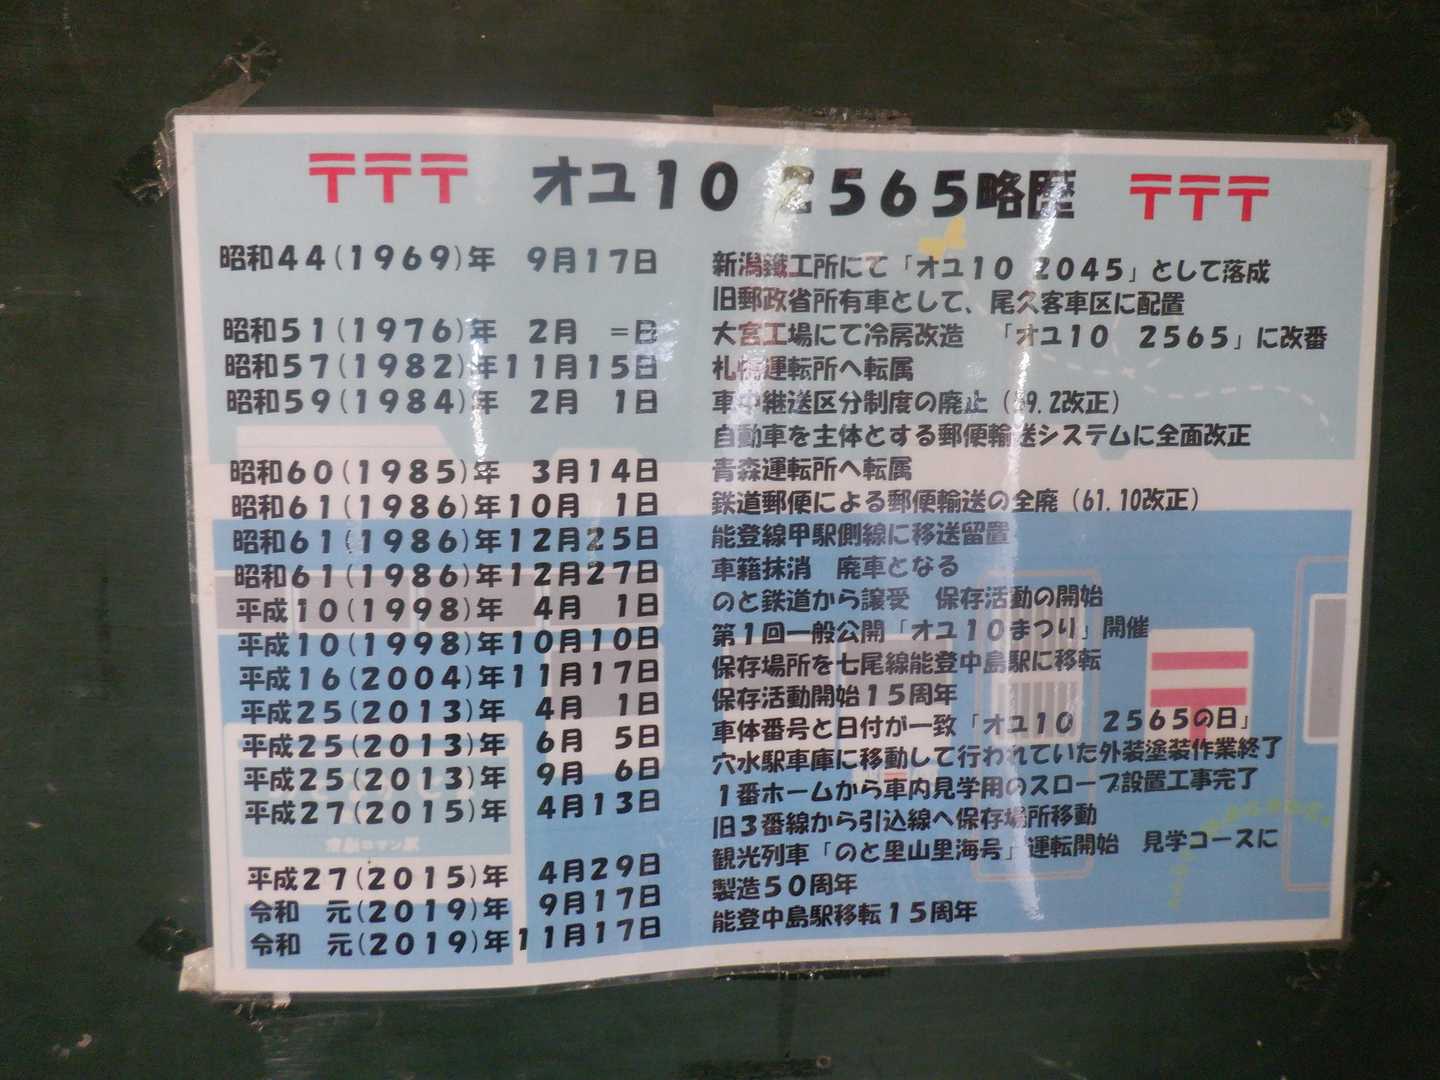 〒〒〒 オユ10 2565略歴 〒〒〒
昭和44(1969)年 9月17日 新潟鐵工所にて「オユ10 2045」として落成
旧郵政省所有車として、尾久客車区に配置
昭和51(1976)年 2月 =日 大宮工場にて冷房改造 「オユ10 2565」に改番
昭和57(1982)年11月15日 札幌運転所へ転属
昭和59(1984)年 2月 1日 車中継送区分制度の廃止(59.2改正)
自動車を主体とする郵便輸送システムに全面改正
昭和60(1985)年 3月14日 青森運転所へ転属
昭和61(1986)年10月 1日 鉄道郵便による郵便輸送の全廃(61.10改正)
昭和61(1986)年12月25日 能登線甲駅側線に移送留置
昭和61(1986)年12月27日 車籍抹消 廃車となる
平成10(1998)年 4月 1日 のと鉄道から譲受 保存活動の開始
平成10(1998)年10月10日 第1回一般公開「オユ10まつり」開催
平成16(2004)年11月17日 保存場所を七尾線能登中島駅に移転
平成25(2013)年 4月 1日 保存活動開始15周年
平成25(2013)年 6月 5日 車体番号と日付が一致「オユ10 2565の日」
平成25(2013)年 9月 6日 穴水駅車庫に移動して行われていた外装塗装作業終了
平成27(2015)年 4月13日 1番ホームから車内見学用のスロープ設置工事完了
旧3番線から引込線へ保存場所移動
平成27(2015)年 4月29日 観光列車「のと里山里海号」運転開始 見学コースに
令和 元(2019)年 9月17日 製造50周年
令和 元(2019)年11月17日 能登中島駅移転15周年